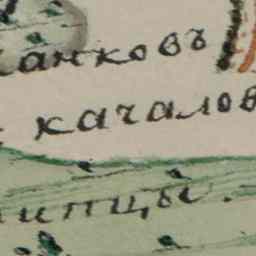 анковъ
качалов
ипцы.